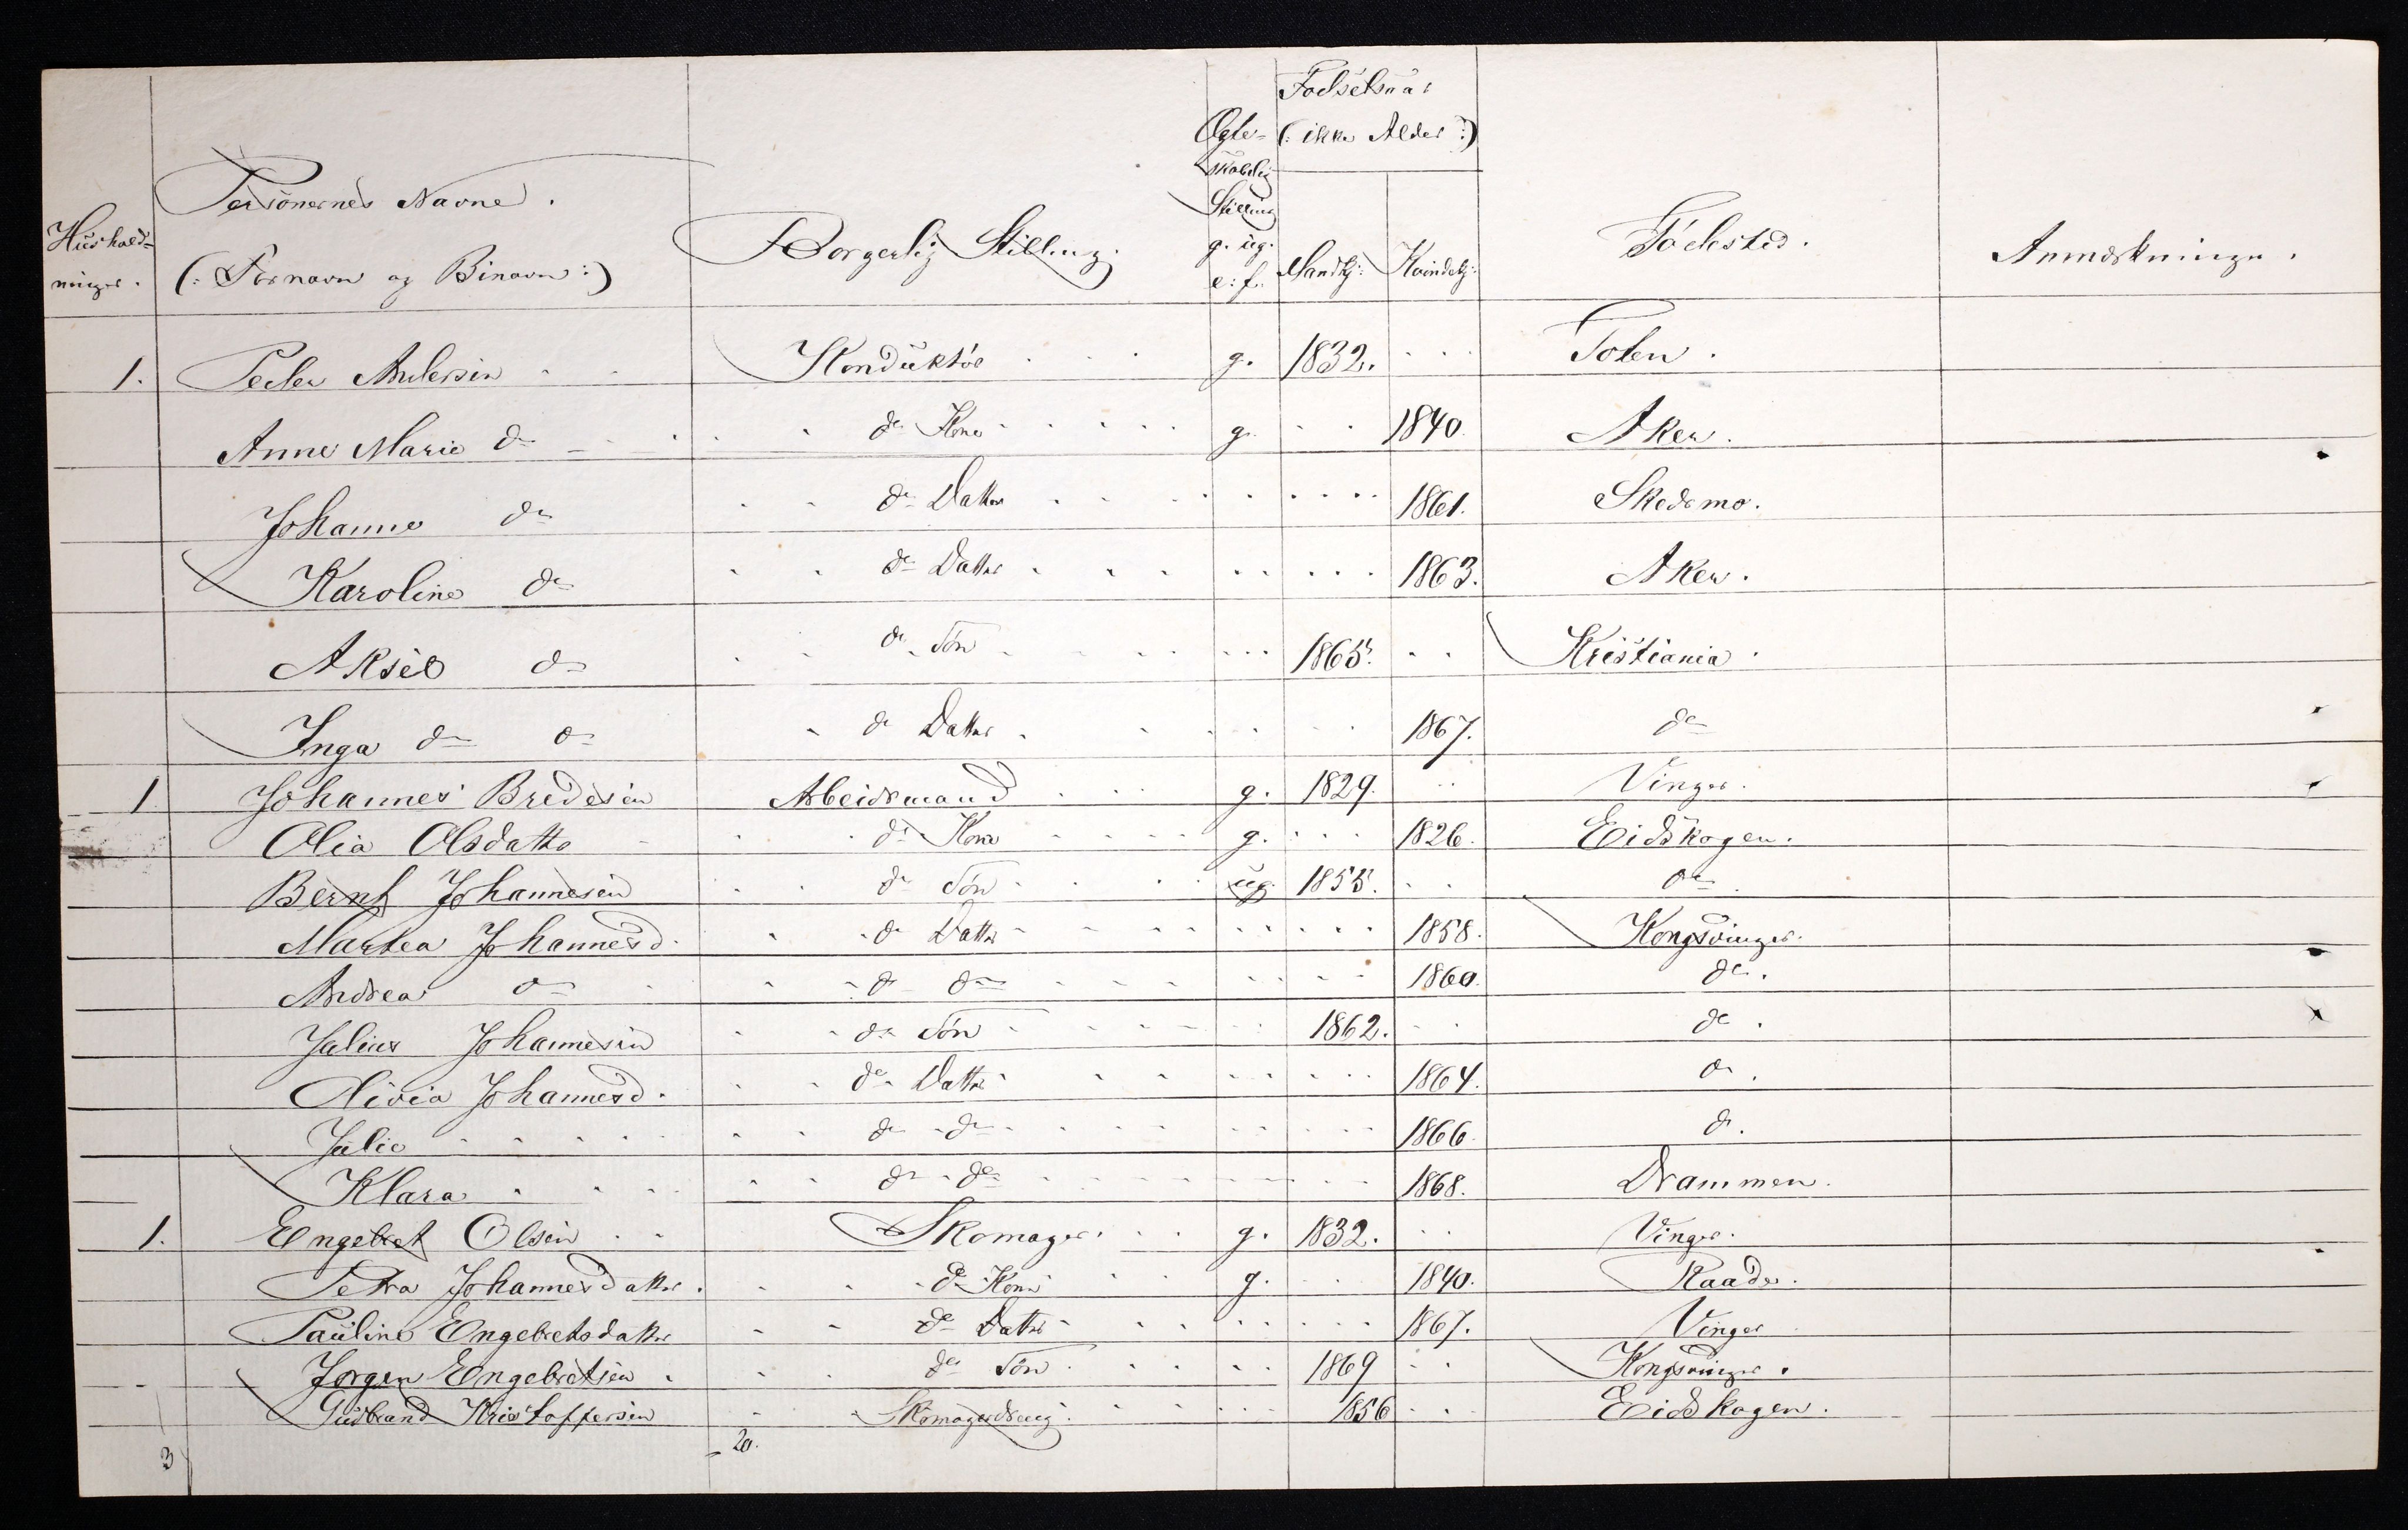 Fødselsaar
Ægte- (: ikke Alder :)
skabelig
Personernes Navne.
Stilling
Hushold-
Borgerlig Stilling.
g. ug.
Fødested.
Anmærkninger.
ninger. (: Fornavn og Binavn :)
e: f. Mandkj: Kvindekj:
1. Peder Andersen Konduktør g. 1832. Toten.
Anne Marie do do Kone g. 1840. Aker.
Johanne do do Datter 1861. Skedsmo.
Karoline do do Datter 1863. Aker.
Aksel do do Søn 1865. Kristiania.
Inga do do do Datter 1867. do
1 Johannes Bredesen Arbeidsmand g. 1829. Vinger.
Olia Olsdatter do Kone g. 1826. Eidskogen.
Bernt Johannesen do Søn ug. 1855. do
Martea Johannesd. do Datter 1858. Kongsvinger.
Andrea do do do 1860. do.
Julius Johannesen do Søn 1862. do.
Olivia Johannesd. do Datter 1864. do.
Julie do do 1866. do.
Klara do do 1868. Drammen.
1. Engebret Olsen Skomager g. 1832. Vinger.
Petra Johannesdatter. do Kone g. 1840. Raade.
Pauline Engebretsdatter do Datter 1867. Vinger
Jørgen Engebretsen do Søn 1869 Kongsvinger.
Gudbrand Kristoffersen Skomagerdreng. 1856 Eidskogen.
3 20.